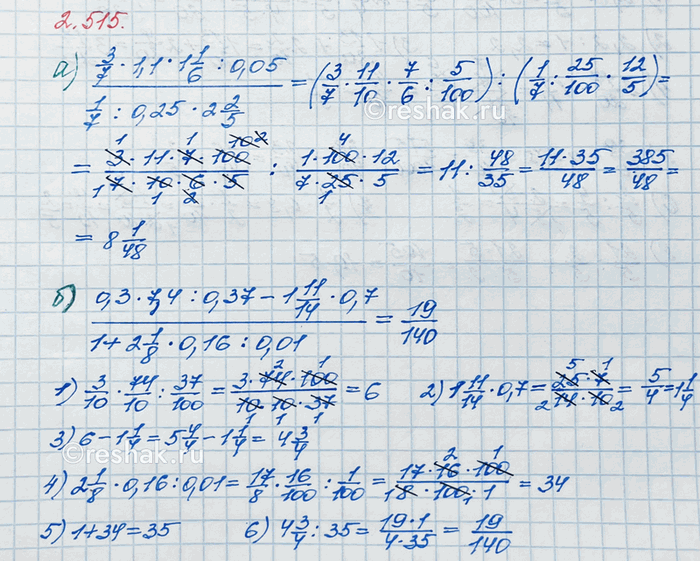 2.515.
а) (3/7 · 1,1 · 1 1/6 : 0,05) / (1/7 : 0,25 · 2 2/5) = (3/7 · 11/10 · 7/6 : 5/100) : (1/7 : 25/100 · 12/5) =
= (3 · 11 · 7 · 100) / (7 · 10 · 6 · 5) : (1 · 100 · 12) / (7 · 25 · 5) = 11 : 48/35 = (11 · 35)/48 = 385/48 =
= 8 1/48
б) (0,3 · 7,4 : 0,37 − 1 11/14 · 0,7) / (1 + 2 1/8 · 0,16 : 0,01) = 19/140
1) 3/10 · 74/10 : 37/100 = (3 · 74 · 100) / (10 · 10 · 37) = 6 2) 1 11/14 · 0,7 = (25 · 7) / (14 · 10) = 5/4 = 1 1/4
3) 6 − 1 1/4 = 5 4/4 − 1 1/4 = 4 3/4
4) 2 1/8 · 0,16 : 0,01 = 17/8 · 16/100 : 1/100 = (17 · 16 · 100) / (8 · 100 · 1) = 34
5) 1 + 34 = 35 6) 4 3/4 : 35 = (19 · 1) / (4 · 35) = 19/140
©reshak.ru
©reshak.ru
©reshak.ru